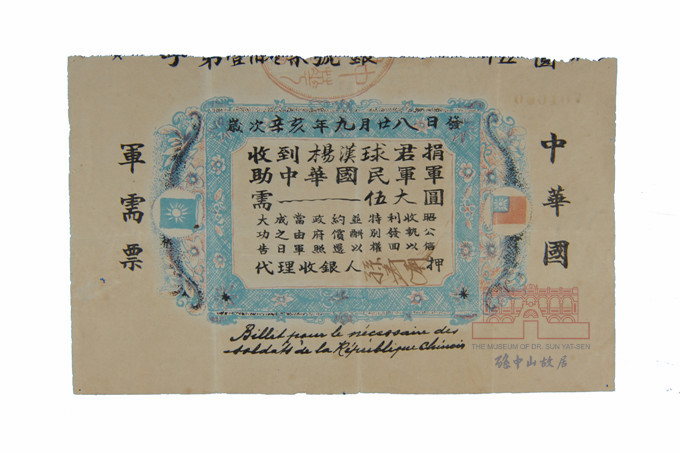 歲次辛亥年九月廿八日發
收到楊漢球君捐
助中華國民軍軍
需伍大圓
大功告
成之日
當由軍
政府照
約償還
並酬以
特別權
利發回
收執以
昭公信
代理收銀人押
軍需票
中華國
Billet pour le nécessaire des
soldats de la République Chinois
THE MUSEUM OF DR. SUN YAT-SEN
孫中山故居